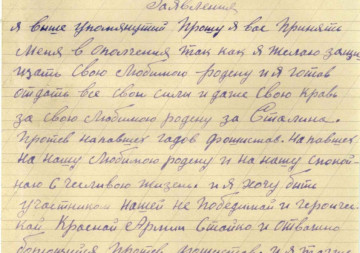 Заявления
Я выше упомянутий Прошу я вас Принять
меня в Ополчения так как я желаю защи
щать Свою Любимою родену и я готов
отдать все свои сили и даже Свою Кровь
за свою Любимою родену за Сталина.
Протев напавших гадов фошистов. Напавших
На нашу Любимою родену и на нашу спокой-
ною Счесливою Жизень и я хочу бить
участником нашей не Победимай и героичес
кой, Красной Армии Стойко и Отважно
протев фошистов. и я также